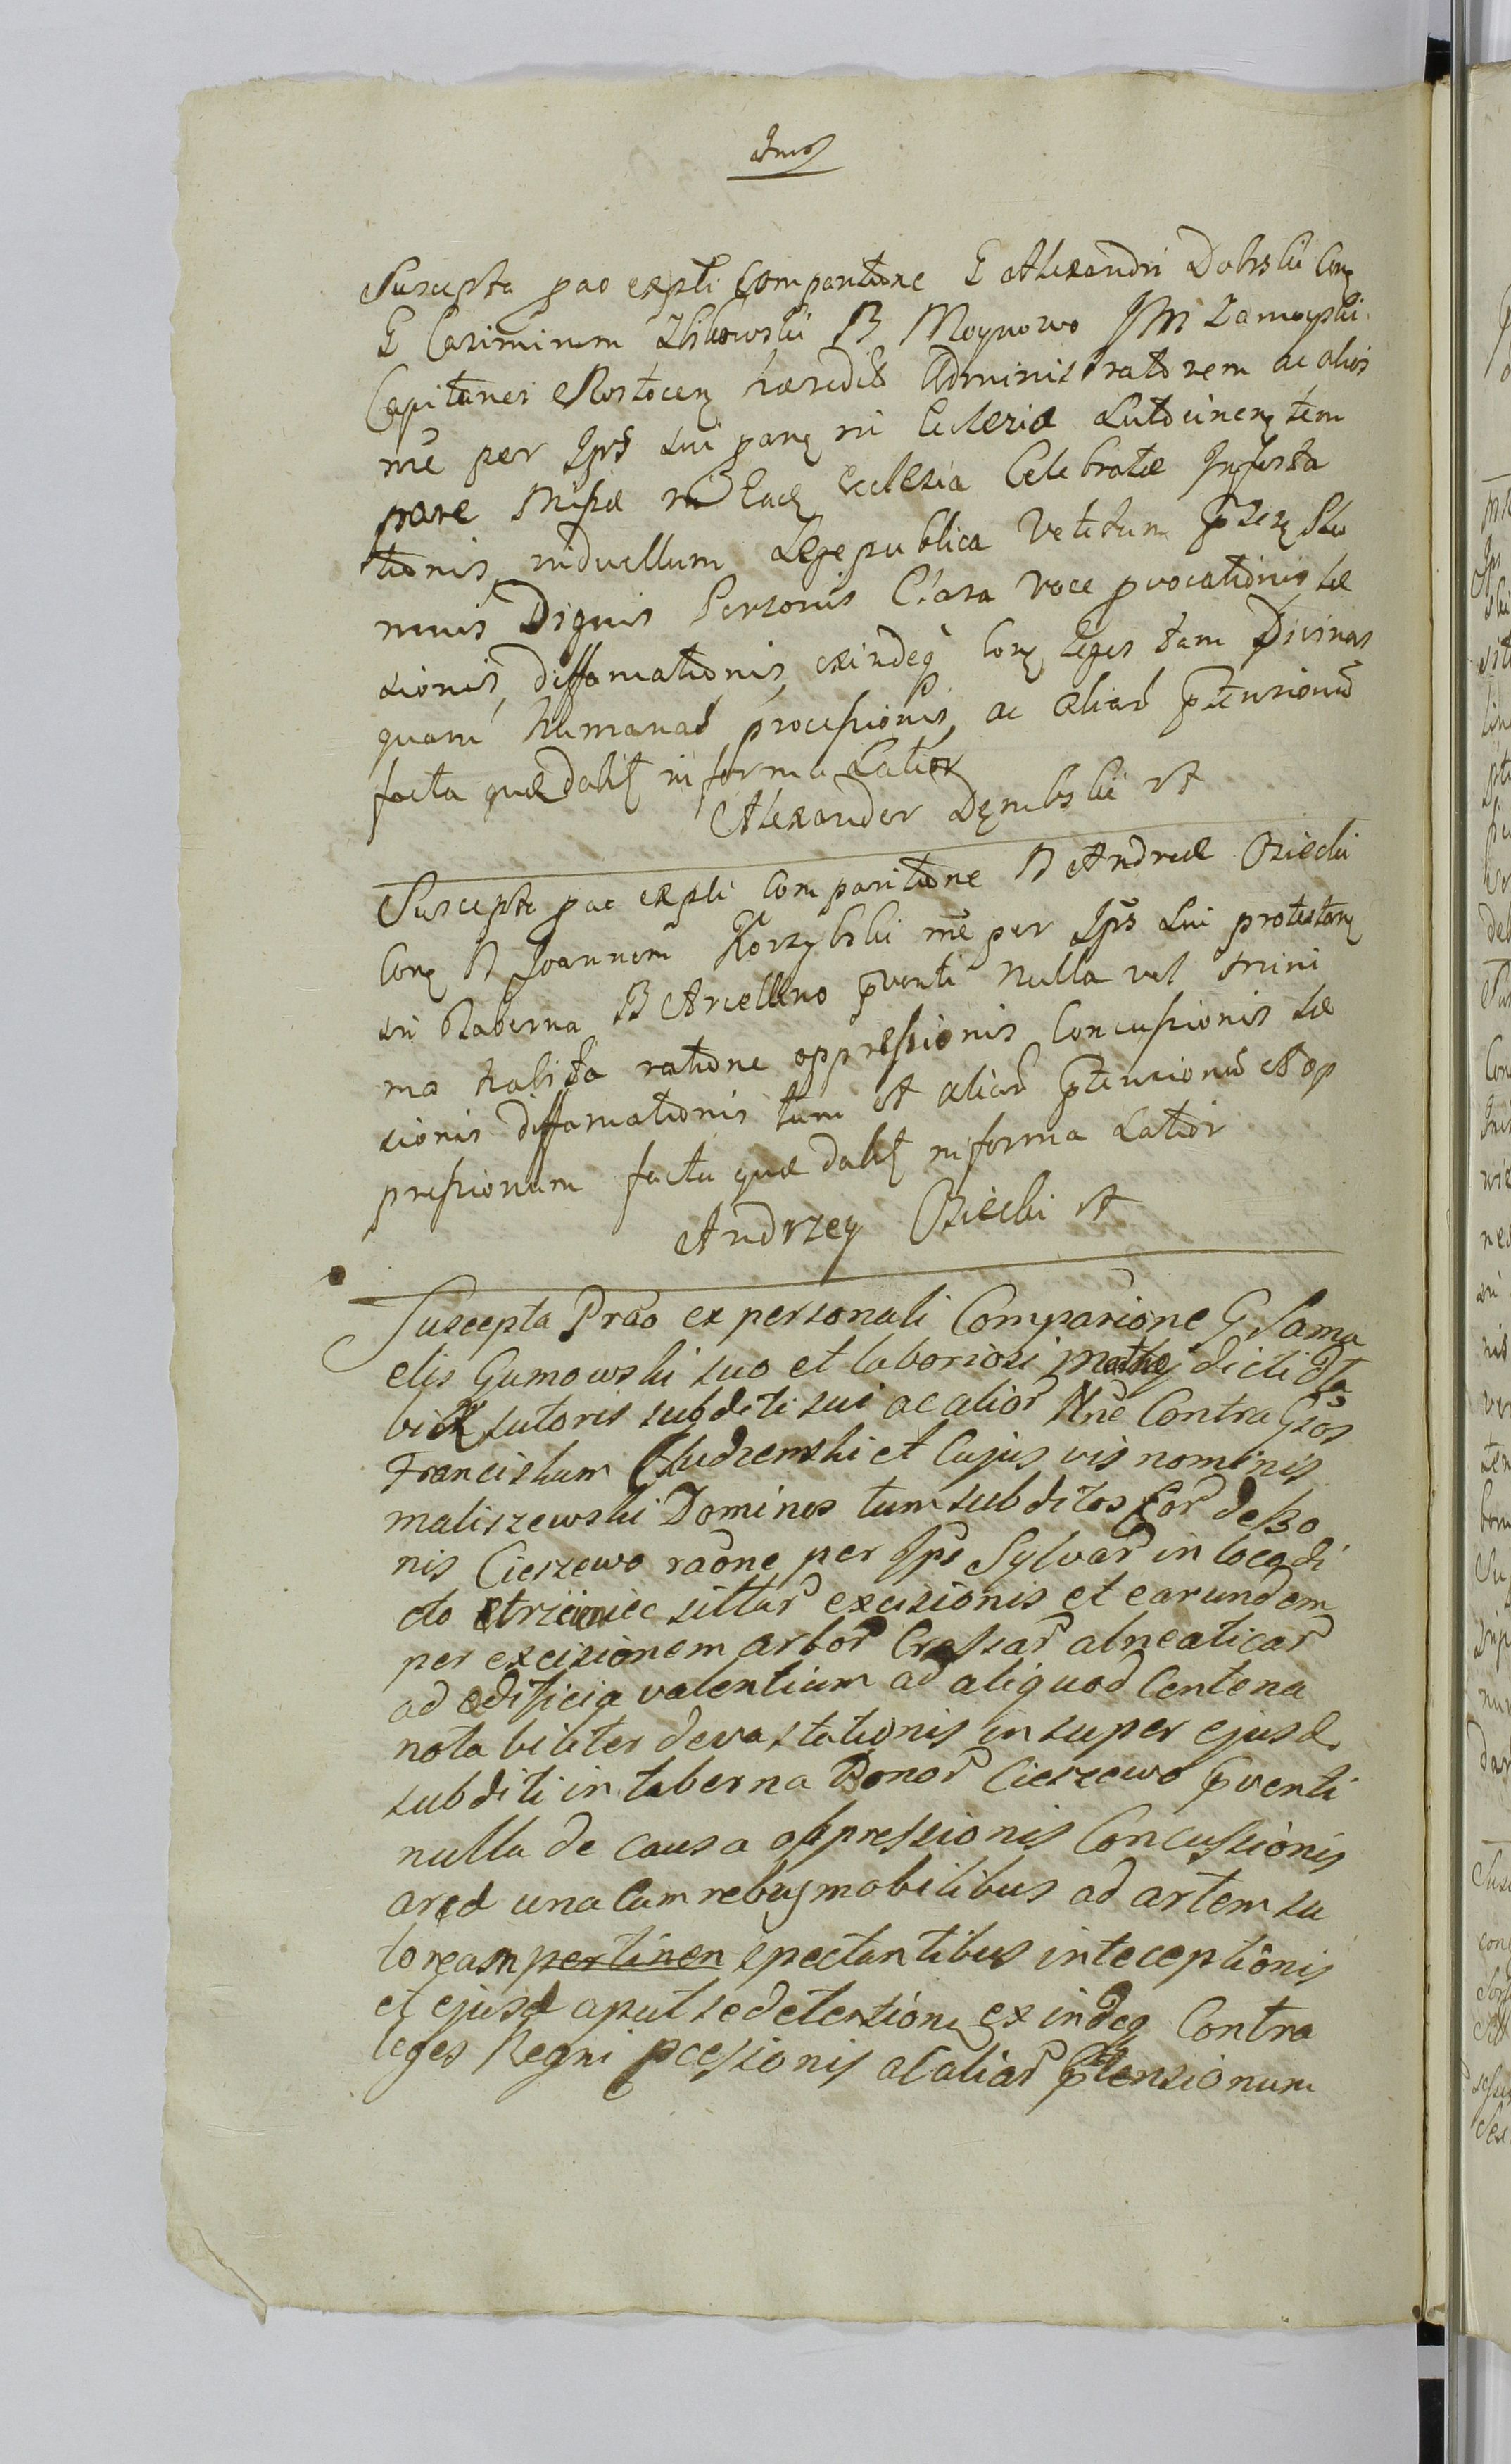 Suscepta pao expli Comparitione G Alexandri Dobrskii Cong
G Casimirum Zbikowski B Moynowo JM Zamoyski
Capitanei Rostocen haeredis Administratorem ac alios
me per Ips sui pang in Ecclesia Lutocinen tem
pore Missae in Eade Ecclesia Celebratae Infesta
tionis, in duellum Lege publica Vetitum
minis Dignis Personis Clara voce provocationis, lae
sionis, diffamationis, exindeq Cong leges tam Divinas
quam humanas processionis, ac aliar ptensionum
facta quae dabit in forma Latior
Alexander Dembskii
Suscepta pao expli Comparitione N Andreae Osiecki
Cong N Joannem Korzybski me per Ips sui protestang
in Taberna B Arcelino pventi nulla vel mini
ma habita ratione oppressionis Concussionis lae
sionis diffamationis tum et aliar ptensionum et op
pressionum facta quae dabit in forma Latior
Andrzey Osiecki
Suscepta Prao ex personali Comparione G Samu
elis Gumowski suo et laboriosi Mathej dicti
sutoris subditi sui ac alior Nne Contra Gsos
Franciskum Chudzenski et Cujus vis nominis
maliszewski Dominos tum subditos Eor de Bo
nis Cieszewo raone per Ips Sylvar in loco di
cto sittar excisionis et earundem
per excisionem arbor Cressar alneaticar
ad aedificia valentium ad aliquod Centena
notabiliter devastationis in super ejusd
subditi in taberna Bonor Cieszewo pventi
nulla de causa oppressionis Concussionis
ared una Cum rebus mobilibus ad artem su
toream pertinen spectantibus inteceptionis
et ejusd aput se detention ex indeq Contra
leges Regni pcessionis ac aliar ptensionum